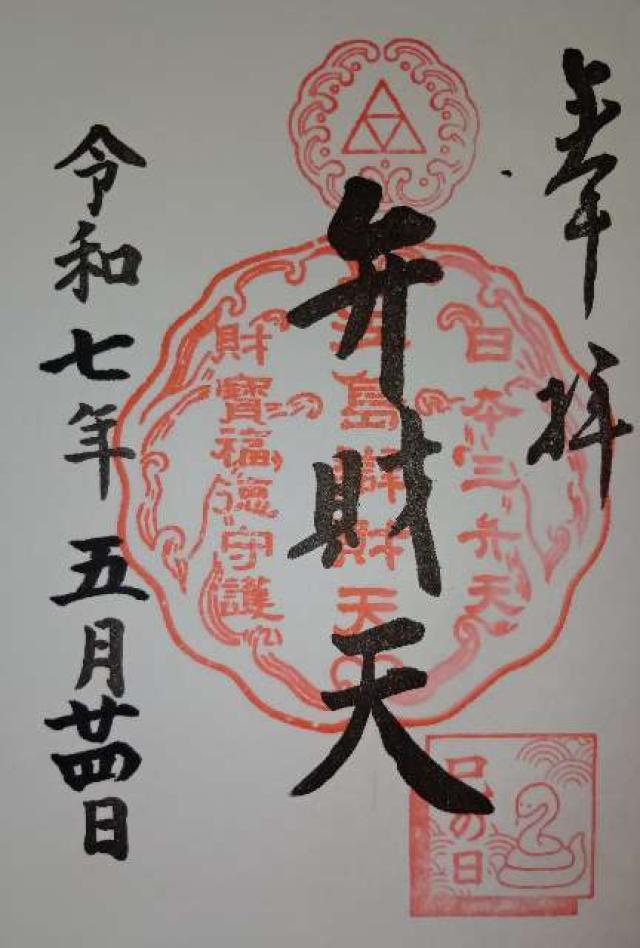 奉拝
日本三弁天
弁財天
江島辨財天
財寶福徳守護
令和七年五月廿四日
巳の日